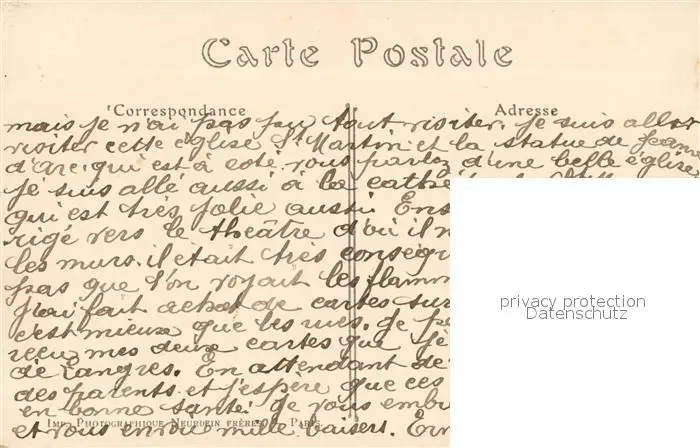 Carte Postale
Correspondance Adresse
mais je n'ai pas pu tout visiter. je suis allé
visiter cette église St Martin et la statue de Jeanne
d'arc. qui est à coté. vous parlez d'une belle église,
je suis allé aussi à la cathé
qui est très jolie aussi. Ens
rigé vers le théâtre d'où il n
les murs. il était très conséqu
pas que l'on voyait les flamm
j'ai fait achat de cartes sur
c'est mieux que les rues. je pe
reçu mes deux cartes que je
de Langres. En attendant de
des parents et j'espère que ces
en bonne santé. je vous embr
IMP. PHOTOGRAPHIQUE NEURDEIN FRÈRES PARIS
et vous envoie mille baisers. Ern
privacy protection
Datenschutz